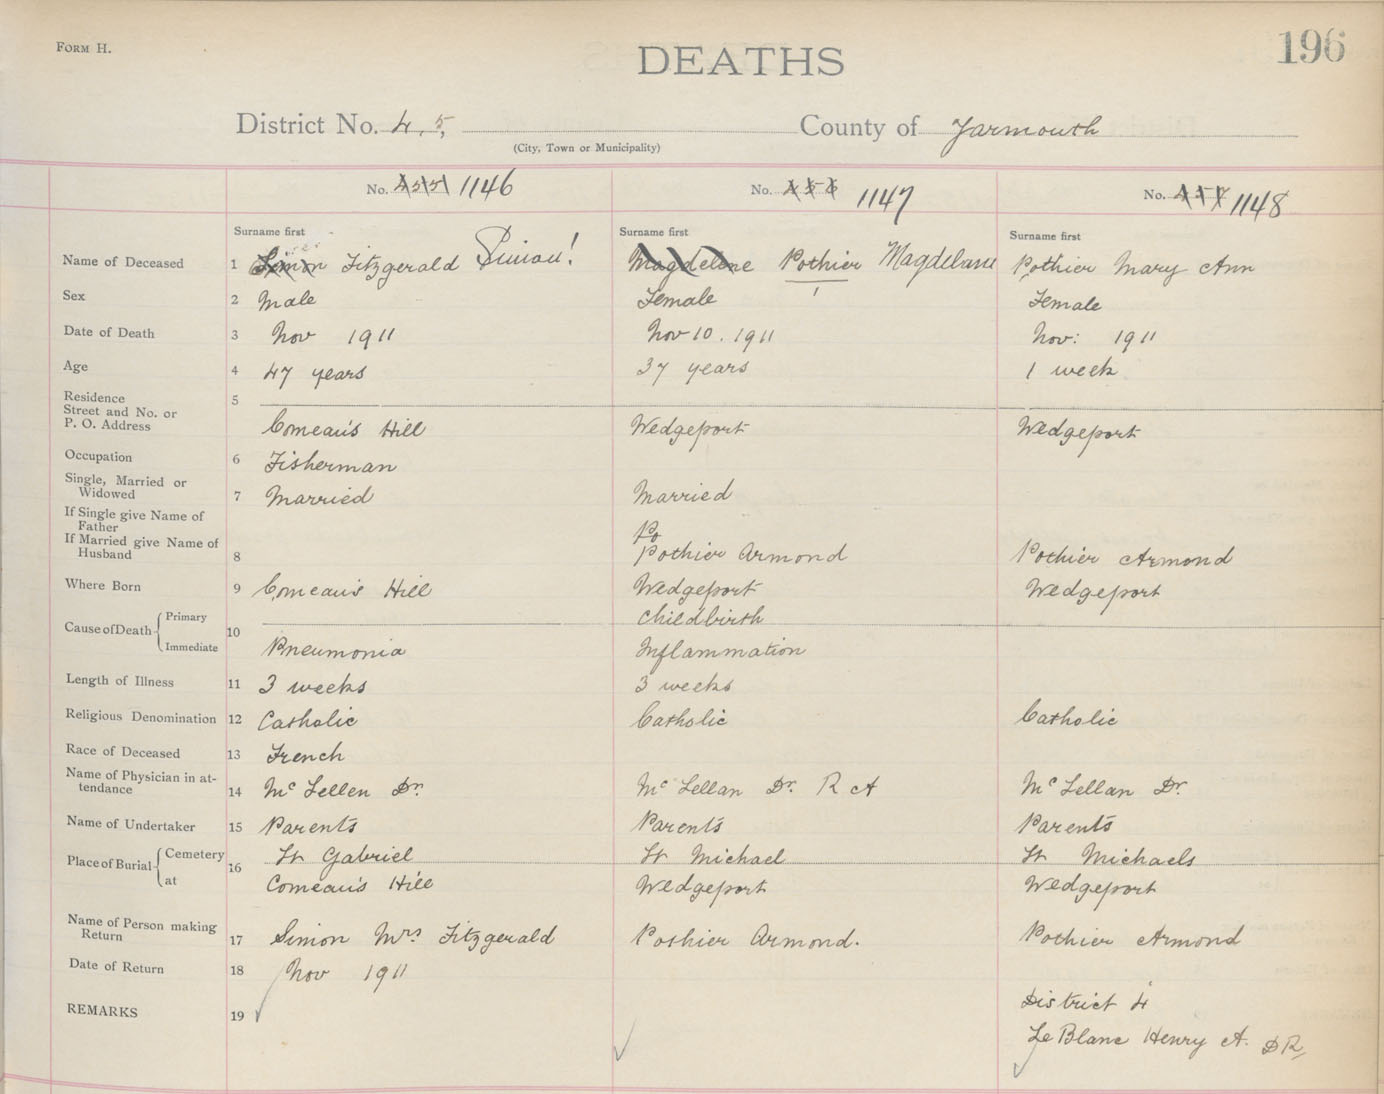 FORM H.
DEATHS
196
District No. 4, 5, County of Yarmouth
(City, Town or Municipality)
No. 1146 No. 1147 No. 1148
Surname first Surname first Surname first
Name of Deceased 1 Simon Fitzgerald Simon! Magdelene Pothier Magdelane Pothier Mary Ann
Sex 2 Male Female Female
Date of Death 3 Nov 1911 Nov 10. 1911 Nov: 1911
Age 4 47 years 37 years 1 week
Residence 5
Street and No. or
P. O. Address Comeau's Hill Wedgeport Wedgeport
Occupation 6 Fisherman
Single, Married or
Widowed 7 Married Married
If Single give Name of
Father Po
If Married give Name of
Husband 8 Pothier Armond Pothier Armond
Where Born 9 Comeau's Hill Wedgeport Wedgeport
Cause of Death Primary 10 Childbirth
Immediate Pneumonia Inflammation
Length of Illness 11 3 weeks 3 weeks
Religious Denomination 12 Catholic Catholic Catholic
Race of Deceased 13 French
Name of Physician in at-
tendance 14 McLellen Dr. McLellan Dr. R A McLellan Dr.
Name of Undertaker 15 Parents Parents Parents
Place of Burial Cemetery 16 St Gabriel St Michael St Michaels
at Comeau's Hill Wedgeport Wedgeport
Name of Person making
Return 17 Simon Mrs Fitzgerald Pothier Armond. Pothier Armond
Date of Return 18 Nov 1911
REMARKS 19 District 4
LeBlanc Henry A. DR,